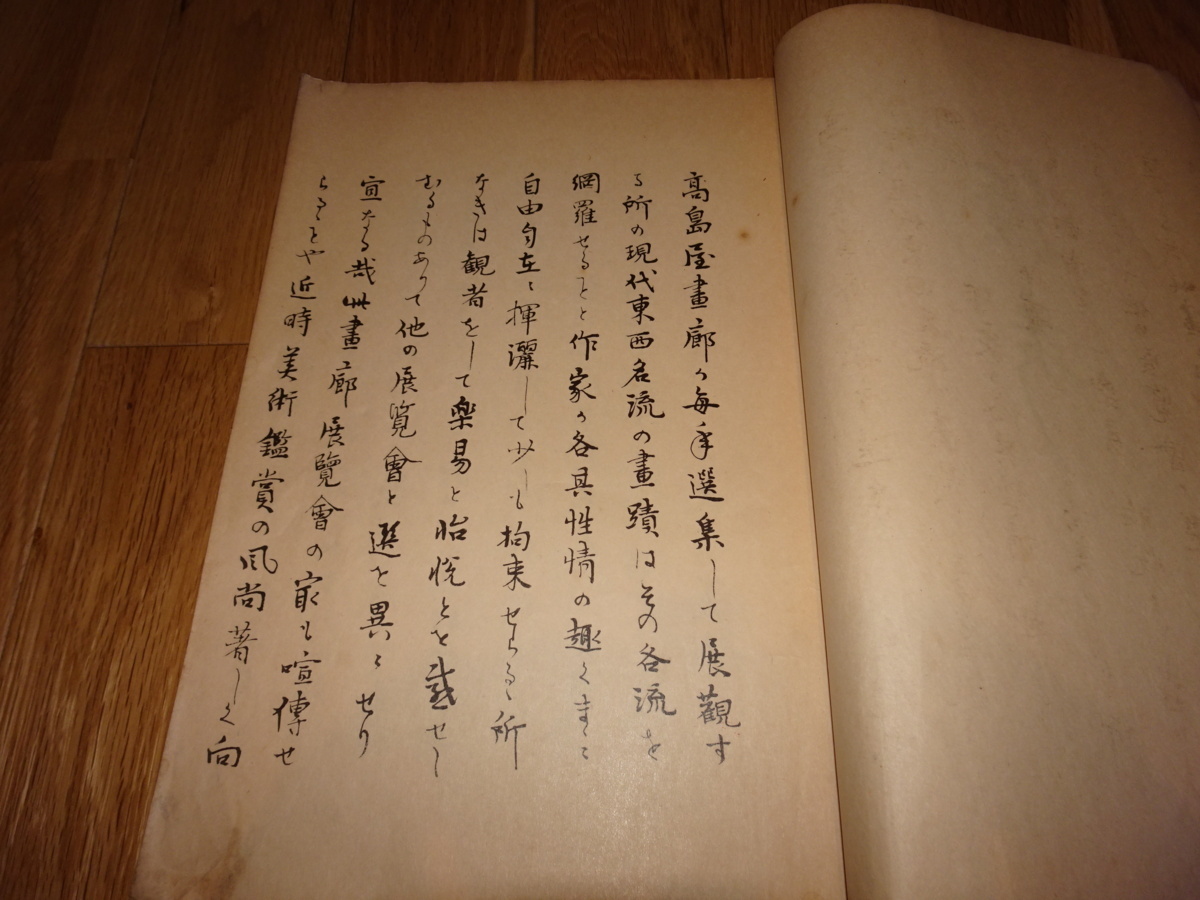 高島屋畫廊が毎年選集して展觀す
る所の現代東西名流の畫蹟はその各流を
網羅せることと作家が各具性情の趣くまゝに
自由自在に揮灑して少しも拘束せらるゝ所
なきは観者をして楽易と怡悦とを感せし
むるものありて他の展覧會と選を異にせり
宣なる哉此畫廊展覽會の最も喧傳せ
らるゝや近時美術鑑賞の風尚著しく向